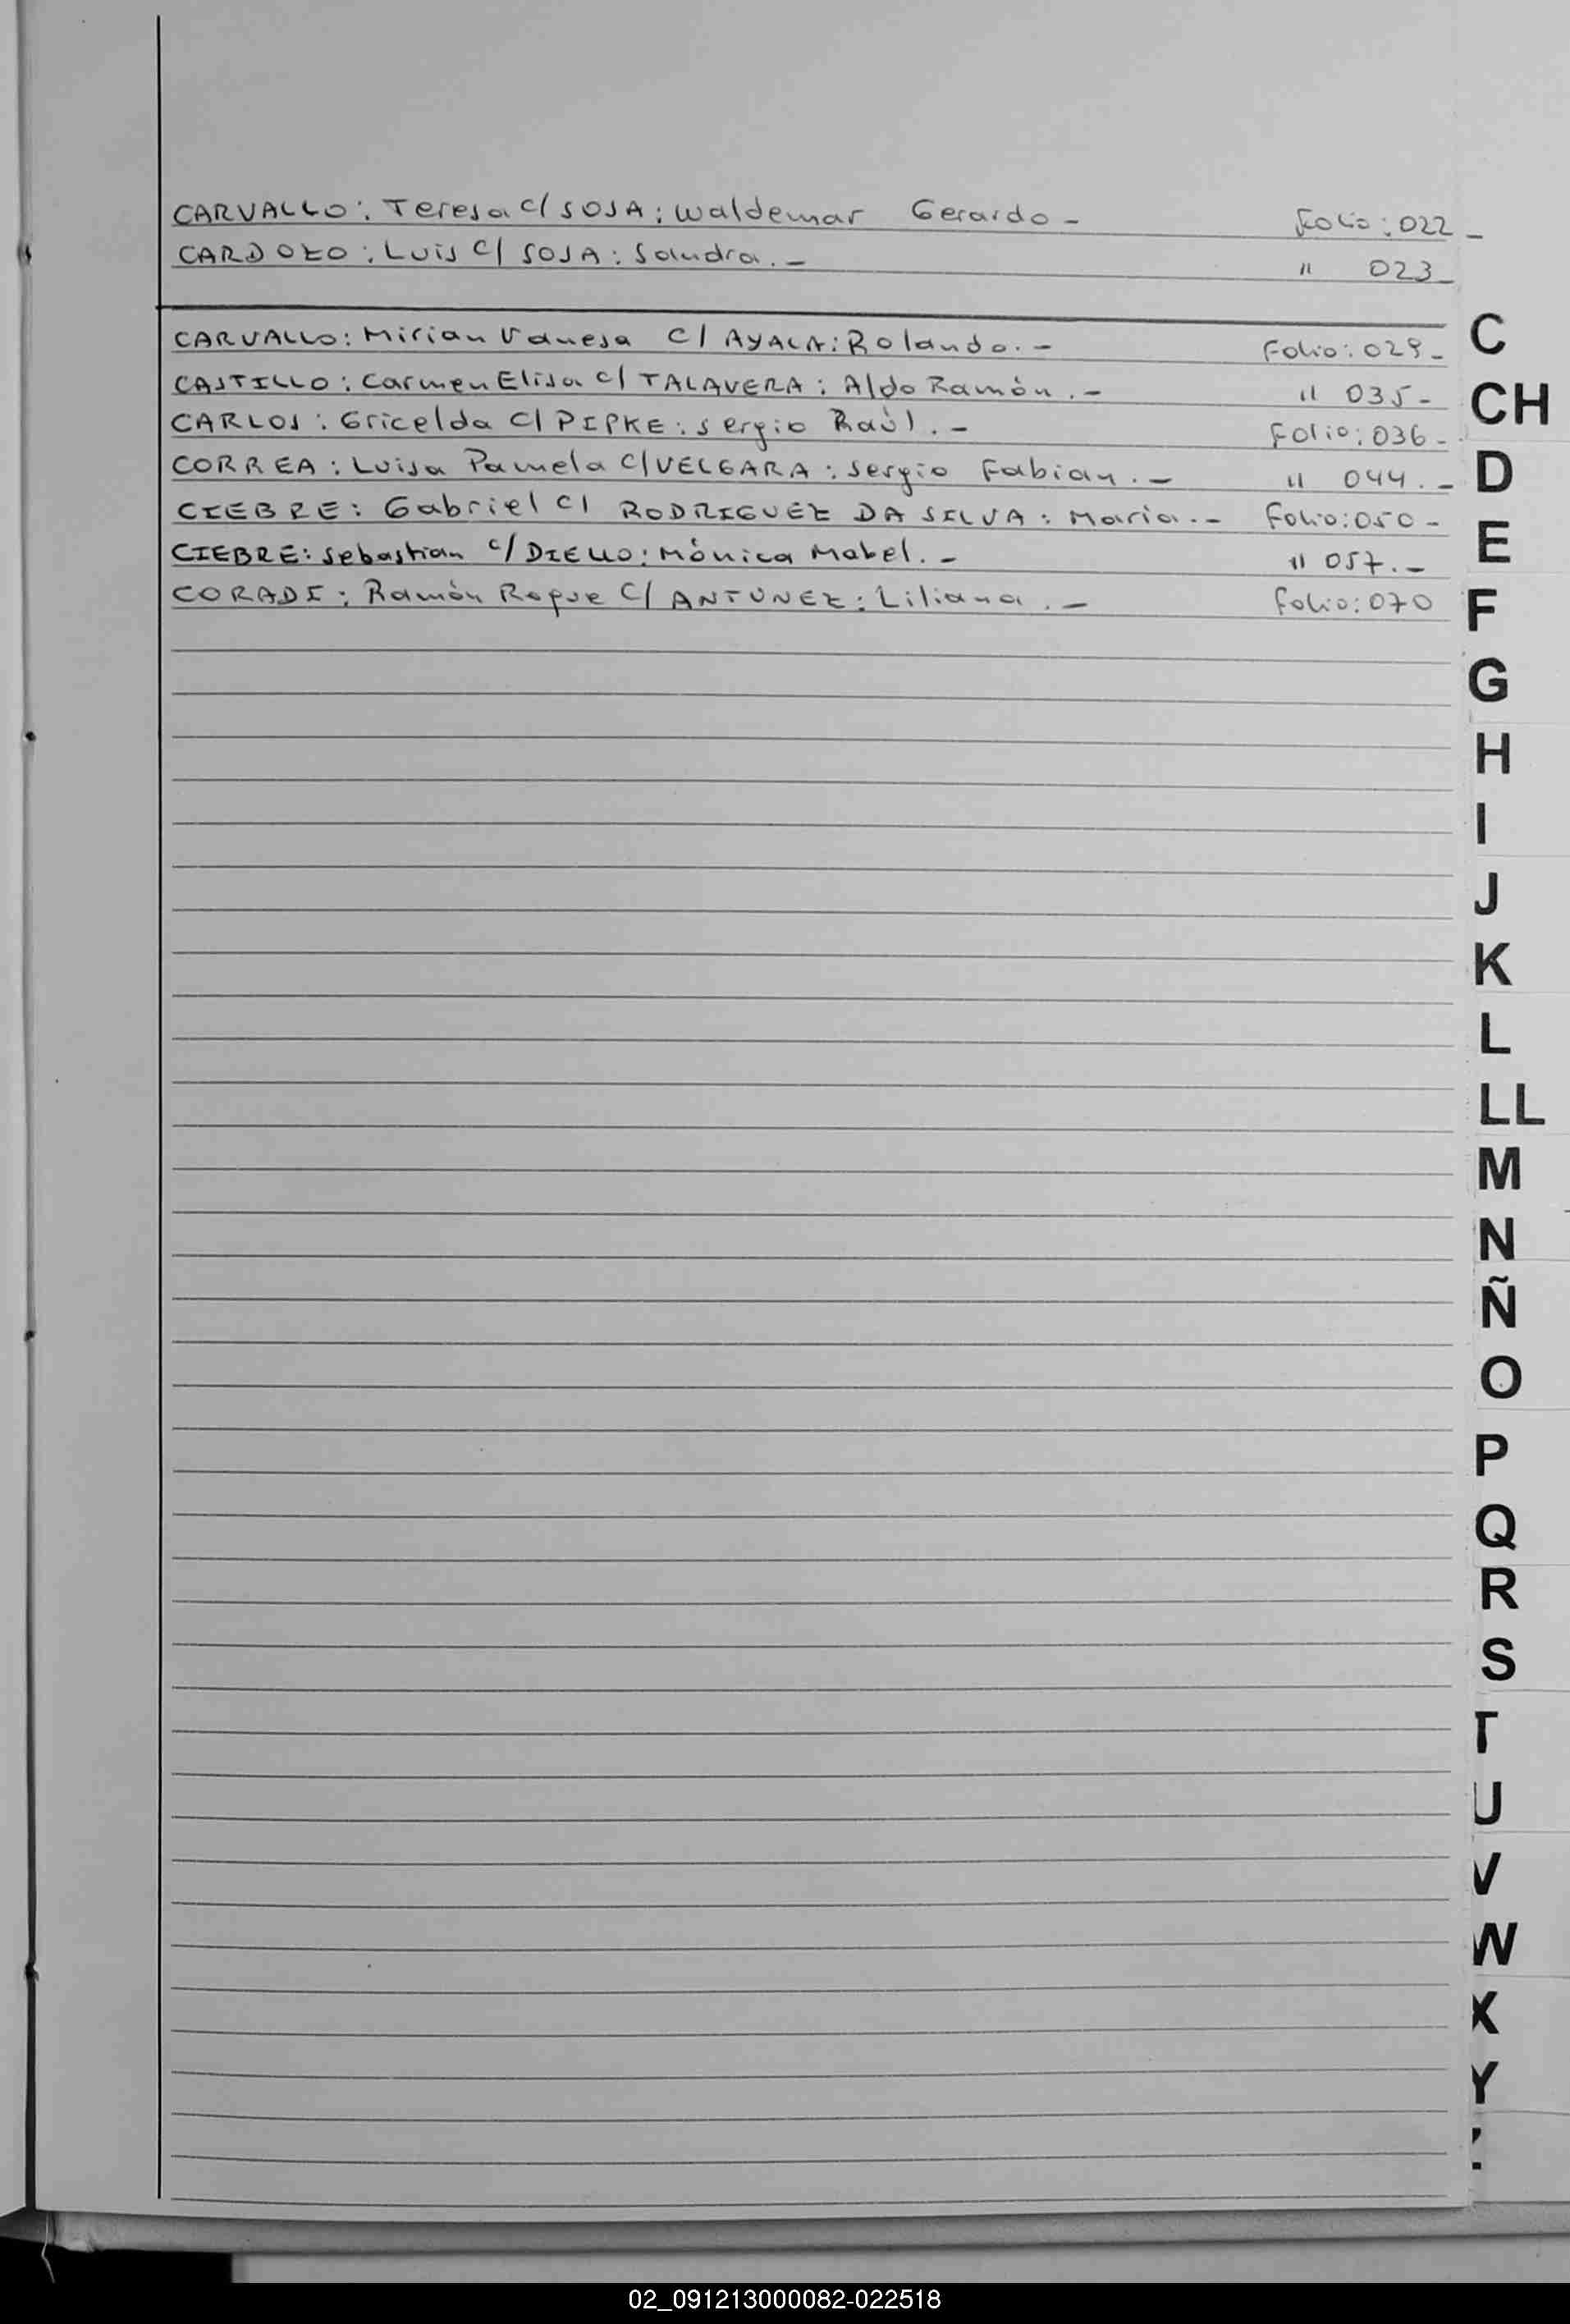 CARVALLO: Teresa c/ SOSA: Waldemar Gerardo - Folio: 022 -
CARDOZO: Luis c/ SOSA: Sandra. - " 023 -
CARVALLO: Mirian Vanesa c/ AYALA: Rolando. - Folio: 029 -
CASTILLO: Carmen Elisa c/ TALAVERA: Aldo Ramón. - " 035 -
CARLOS: Gricelda c/ PIPKE: Sergio Raúl. - Folio: 036 -
CORREA: Luisa Pamela c/ VELGARA: Sergio Fabian. - " 044. -
CIEBRE: Gabriel c/ RODRIGUEZ DA SILVA: Maria. - Folio: 050 -
CIEBRE: Sebastian c/ DIELLO: Mónica Mabel. - " 057. -
CORADI: Ramón Roque c/ ANTUNEZ: Liliana. - Folio: 070
C
CH
D
E
F
G
H
I
J
K
L
LL
M
N
Ñ
O
P
Q
R
S
T
U
V
W
X
Y
02_091213000082-022518